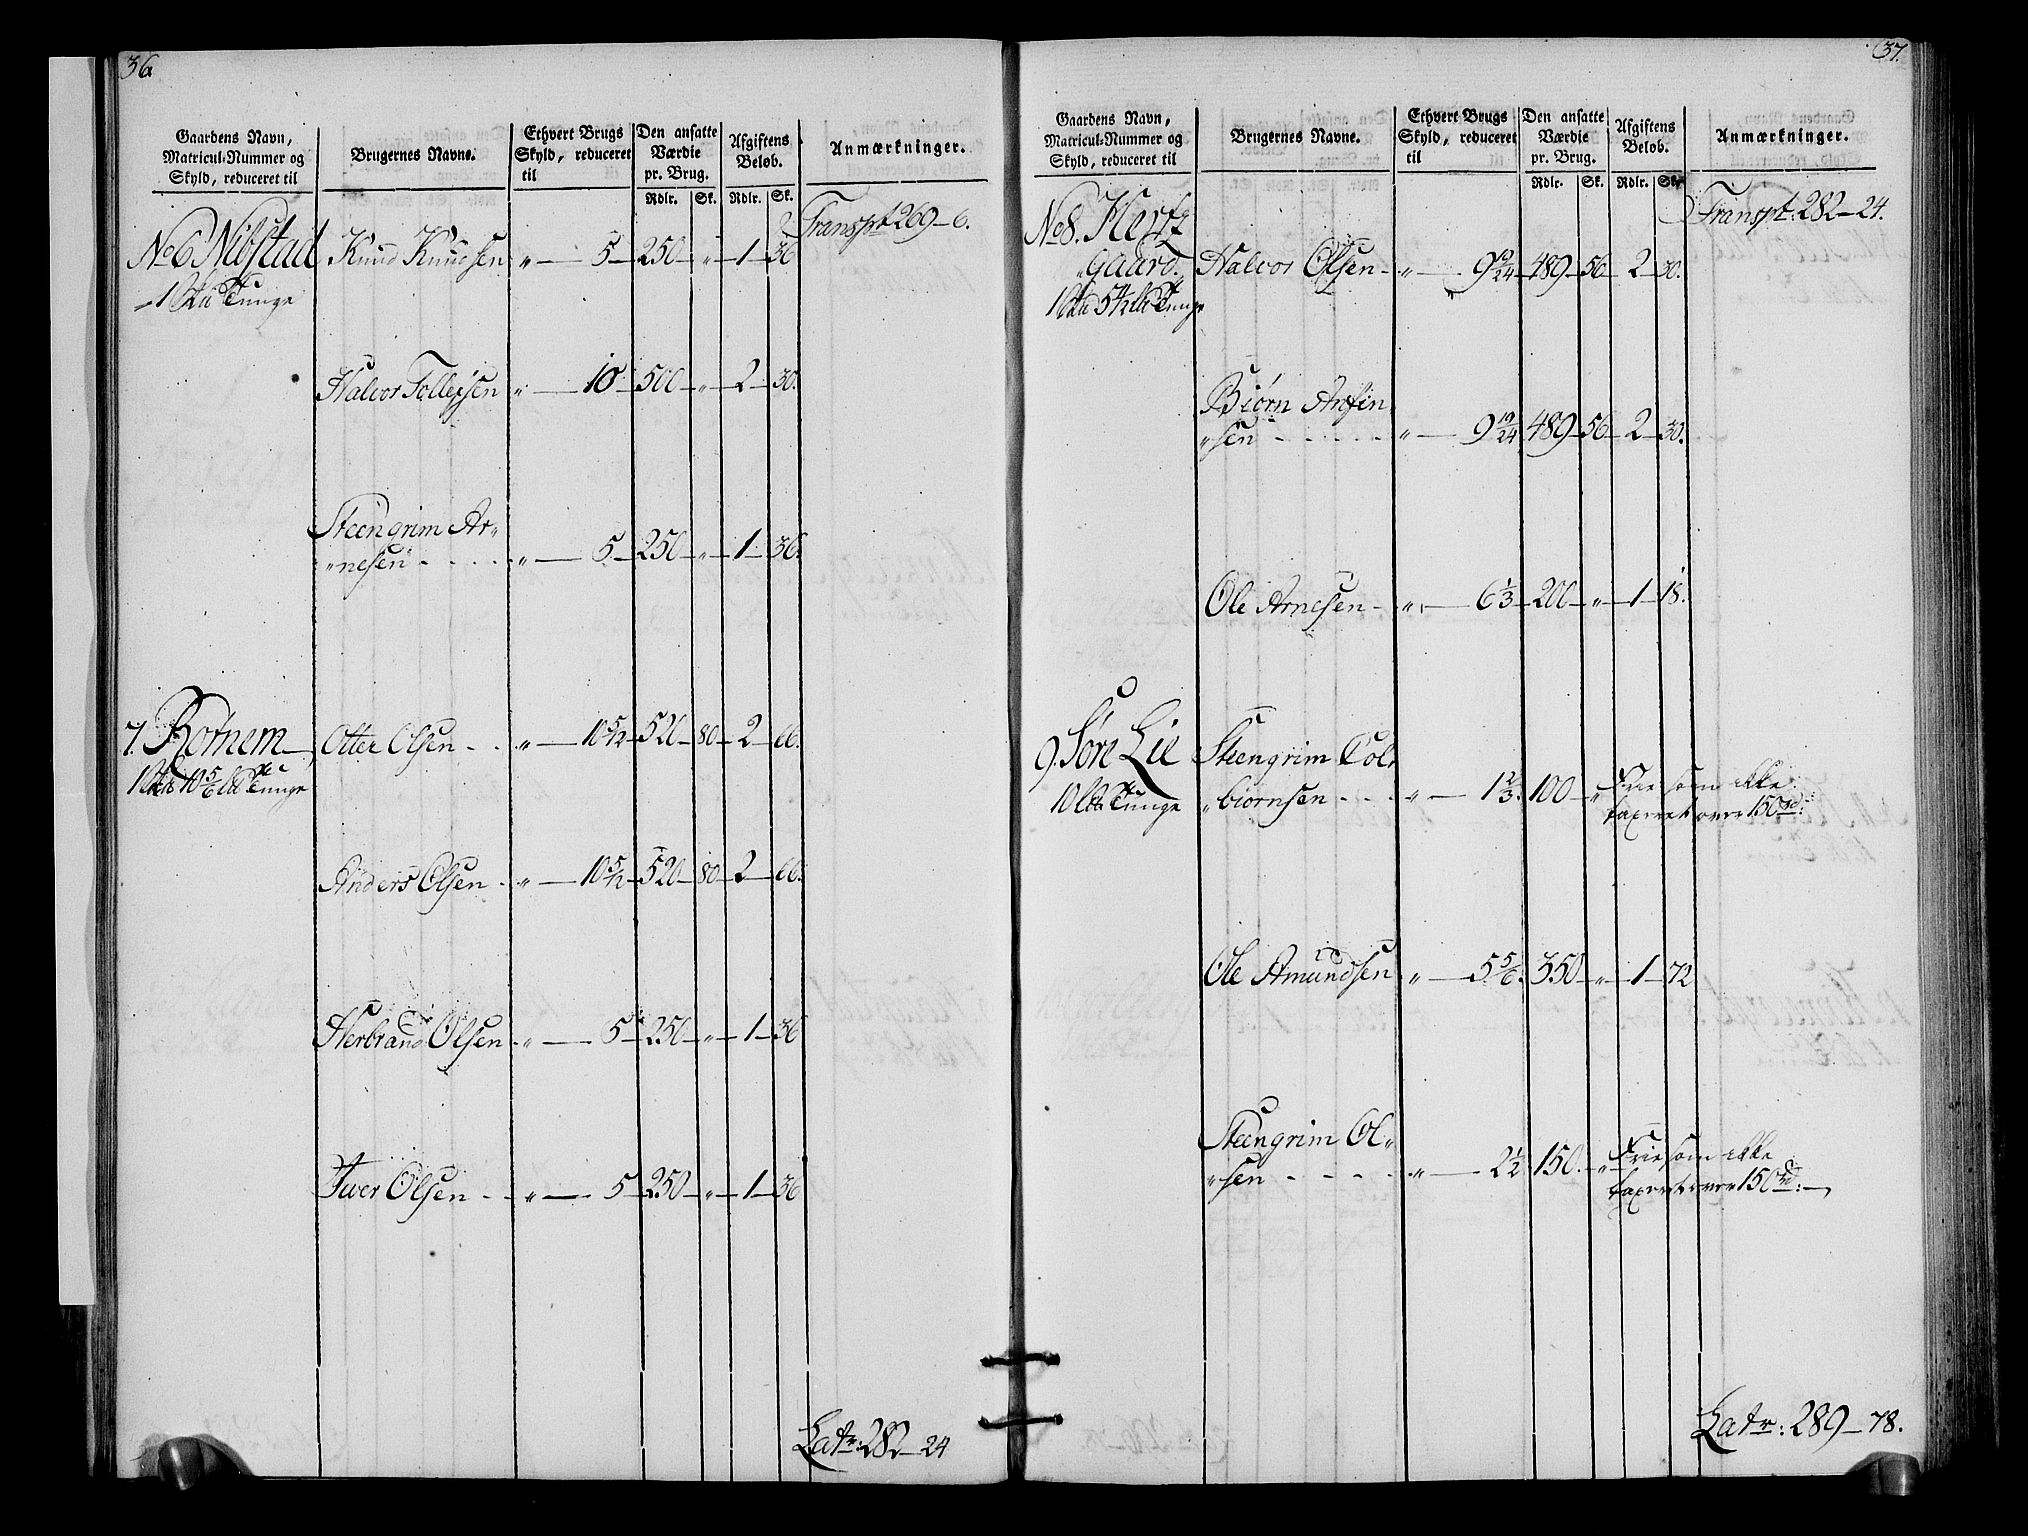 36.
Gaardens Navn, Matricul-Nummer og Skyld, reduceret til
Brugernes Navne.
Ethvert Brugs Skyld, reduceret til
Den ansatte Værdie pr. Brug.
Afgiftens Beløb.
Anmærkninger.
Rdlr. Sk. Rdlr. Sk.
Transpt 269 - 6.
No 6 Nibstad Knud Knudsen „ — 5 — 250 — „ — 1 — 36
1 Tunge
Halvor Tollefsen „ — 10 — 500 — „ — 2 — 30.
Steengrim Ar„
„nesen „ — 5 — 250 — „ — 1 — 36.
7. Rotnem Otter Olsen „ — 10 5/12 — 520 — 80 — 2 — 66.
10 5/6 Tunge
Anders Olsen „ — 10 5/12 — 520 — 80 — 2 — 66.
Herbrand Olsen „ — 5 — 250 — „ — 1 — 36
Iwer Olsen „ — 5 — 250 — „ — 1 — 36
Latr: 282 — 24
37.
Gaardens Navn, Matricul-Nummer og Skyld, reduceret til
Brugernes Navne.
Ethvert Brugs Skyld, reduceret til
Den ansatte Værdie pr. Brug.
Afgiftens Beløb.
Anmærkninger.
Rdlr. Sk. Rdlr. Sk.
Transpt: 282 — 24.
No 8.
„gaard. Halvor Olsen „ — 9 19/24 — 489 — 56 — 2 — 30.
5 1/2 Tunge
Biørn Anfin„
„sen „ — 9 19/24 — 489 — 56 — 2 — 30.
Ole Arnesen „ — 6 1/3 — 200 — „ — 1 — 18.
9. Søre Lie Steengrim Col„
10 Tunge „biørnsen „ — 1 2/3. 100 — „ Frie som ikke
taxeret over 150 rd:
Ole Amundsen „ — 5 5/6. 350 — „ — 1 — 72
Steengrim Ol„
„sen „ — 2 1/2 150. — „ Frie som ikke
taxeret over 150 rd:
Latr: 289 — 78.